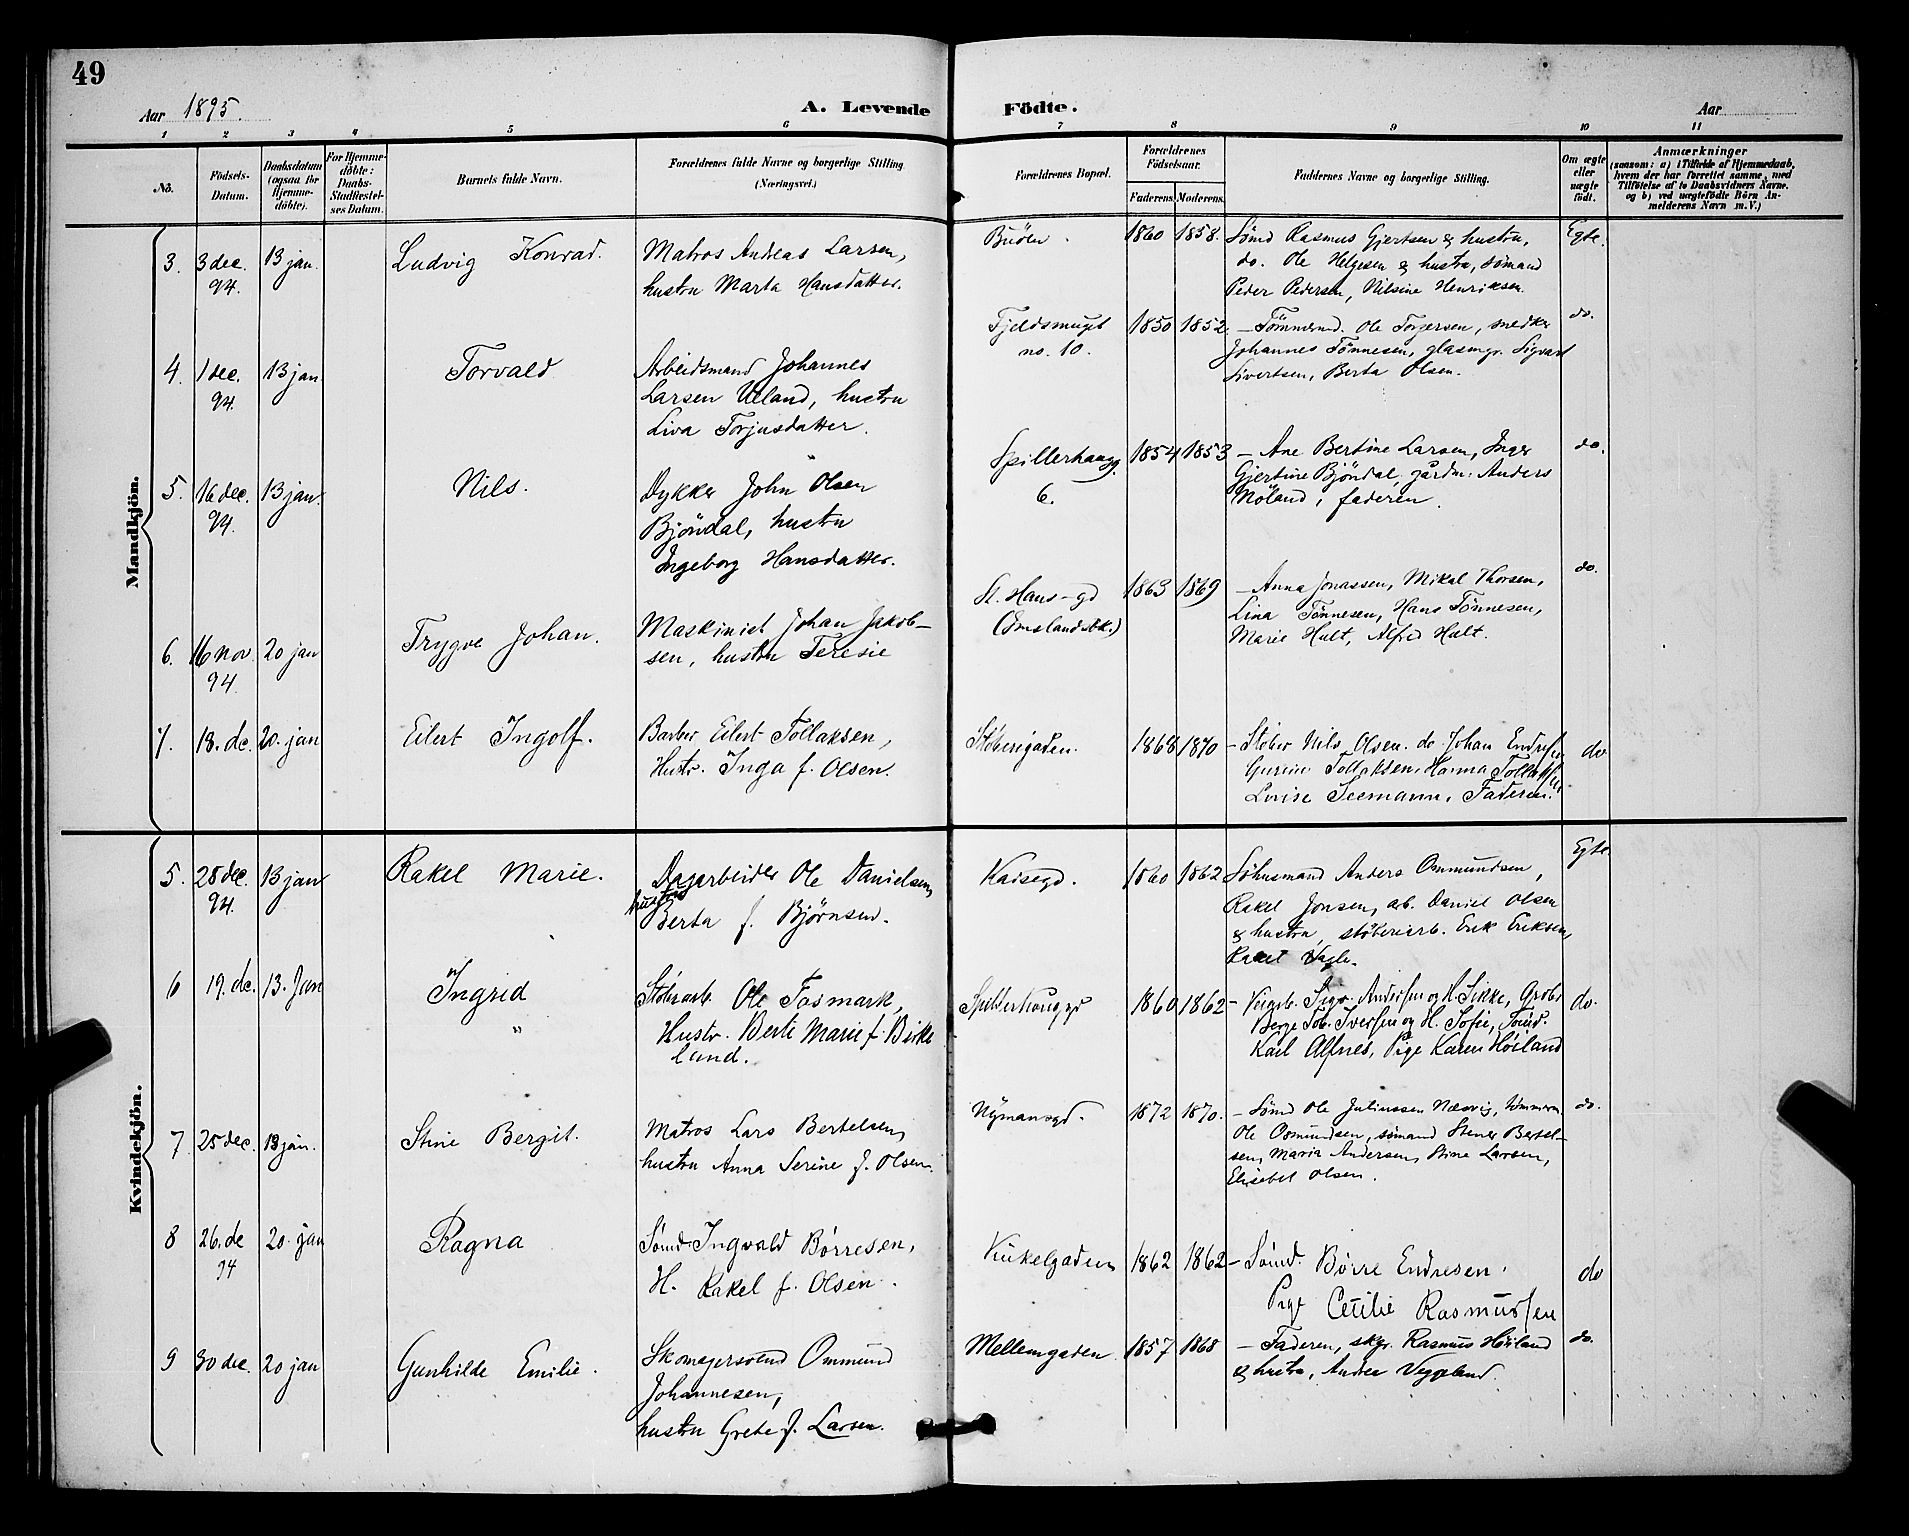 49
Aar 1895.
A. Levende Födte.
Aar
1 2 3 4 5 6 7 8 9 10 11
No.
Födsels-Datum.
Daabsdatum (ogsaa for Hjemme-döbte).
For Hjemme-döbte: Daabs-Stadfæstel-ses Datum.
Barnets fulde Navn.
Forældrenes fulde Navne og borgerlige Stilling (Næringsvei.)
Forældrenes Bopæl.
Forældrenes Födselsaar.
Faderens. Moderens.
Faddernes Navne og borgerlige Stilling.
Om ægte eller uægte födt.
Anmærkninger
(saasom: a) i Tilfælde af Hjemmedaab, hvem der har forrettet samme, med Tilföielse af to Daabsvidners Navne. og b) ved uægtefödte Börn An-melderens Navn m.V.)
Mandkjön.
3. 3 dec. 94. 13 jan. Ludvig Konrad.
Matros Andreas Larsen,
hustru Marta Hansdatter.
Buöen. 1860 1858.
Sømd Rasmus Gjertsen & hustru,
do. Ole Helgesen & hustru, sømand
Peder Pedersen, Nilsine Henriksen.
Egte.
4. 1 dec. 94. 13 jan Torvald
Arbeidsmand Johannes
Larsen Ueland, hustru
Liva Torjusdatter.
Fjeldsmuget
no. 10.
1850 1852.
– Tømmermd. Ole Torgersen, snedker
Johannes Tønnesen, glasmgr. Sigvart
Sivertsen, Berta Olsen.
do.
5. 16 dec. 94. 13 jan. Nils.
Dykker John Olsen
Bjöndal, hustru
Ingeborg Hansdatter.
Spilderhaugg.
6.
1854 1853
– Ane Bertine Larsen, Inger
Gjertine Bjöndal, gårdm. Anders
Möland, faderen.
do.
6. 16 nov. 94. 20 jan Trygve Johan.
Maskinist Johan Jakob-
sen, hustru Teresie
St. Hans-gd
(Imslandsbk.)
1863 1869
– Anna Jonassen, Mikal Thorsen,
Lina Tönnesen, Hans Tönnesen,
Marie Hult, Alfred Hult.
do.
7. 18. de. 20. jan Eilert Ingolf.
Barber Eilert Tollaksen,
Hustr. Inga f. Olsen.
Støberigaden. 1868 1870
– Støber Nils Olsen. do Johan Endresen
Gurine Tollaksen, Hanna Tollaksen,
Lovise Seemann, Faderen.
do
Kvindekjön.
5. 28 dec. 94. 13 jan Rakel Marie.
Dagarbeider Ole Danielsen,
hustru
Berta f. Bjørnsen.
Kaisegd. 1860 1862
Søhusmand Anders Ommundsen,
Rakel Jonsen, arb. Daniel Olsen
& hustru, støberiarb. Erik Eriksen,
Rakel
Egte.
6 19. de. 13. Jan Ingrid
"
Støberarb. Ole Fosmark,
Hustr. Berte Marie f. Birke
land.
Spilderhauggd 1860 1862
Andersen og H. Sikke,
Berge Tob. Iversen og H. Sofie, Sømd.
Karl Alfnes, Pige Karen Høiland
do.
7 25 dec. 13 jan. Stine Bergit.
Matros Lars Bertelsen,
hustru Anna Serine f. Olsen.
Nymansgd. 1872 1870.
– Sømd Ole Julinssen Næsvig, tømmerm.
Ole Osmundsen, sømand Stener Bertel-
sen, Maria Andersen, Stine Larsen,
Elisebet Olsen.
do.
8 26. de 94 20. jan Ragna
Sømd. Ingvald Børresen,
H. Rakel f. Olsen.
Kirkelgaden 1862 1862
– Sømd. Børre Endresen.
Pige Cecilie Rasmussen
do
9 30 dec. 20 jan Gunhilde Emilie.
Skomagersvend Ommund
Johannesen,
hustru Grete f. Larsen.
Mellemgaden 1857 1868
– Faderen, skgr. Rasmus Høiland
& hustru, Andrea Veggeland.
do.